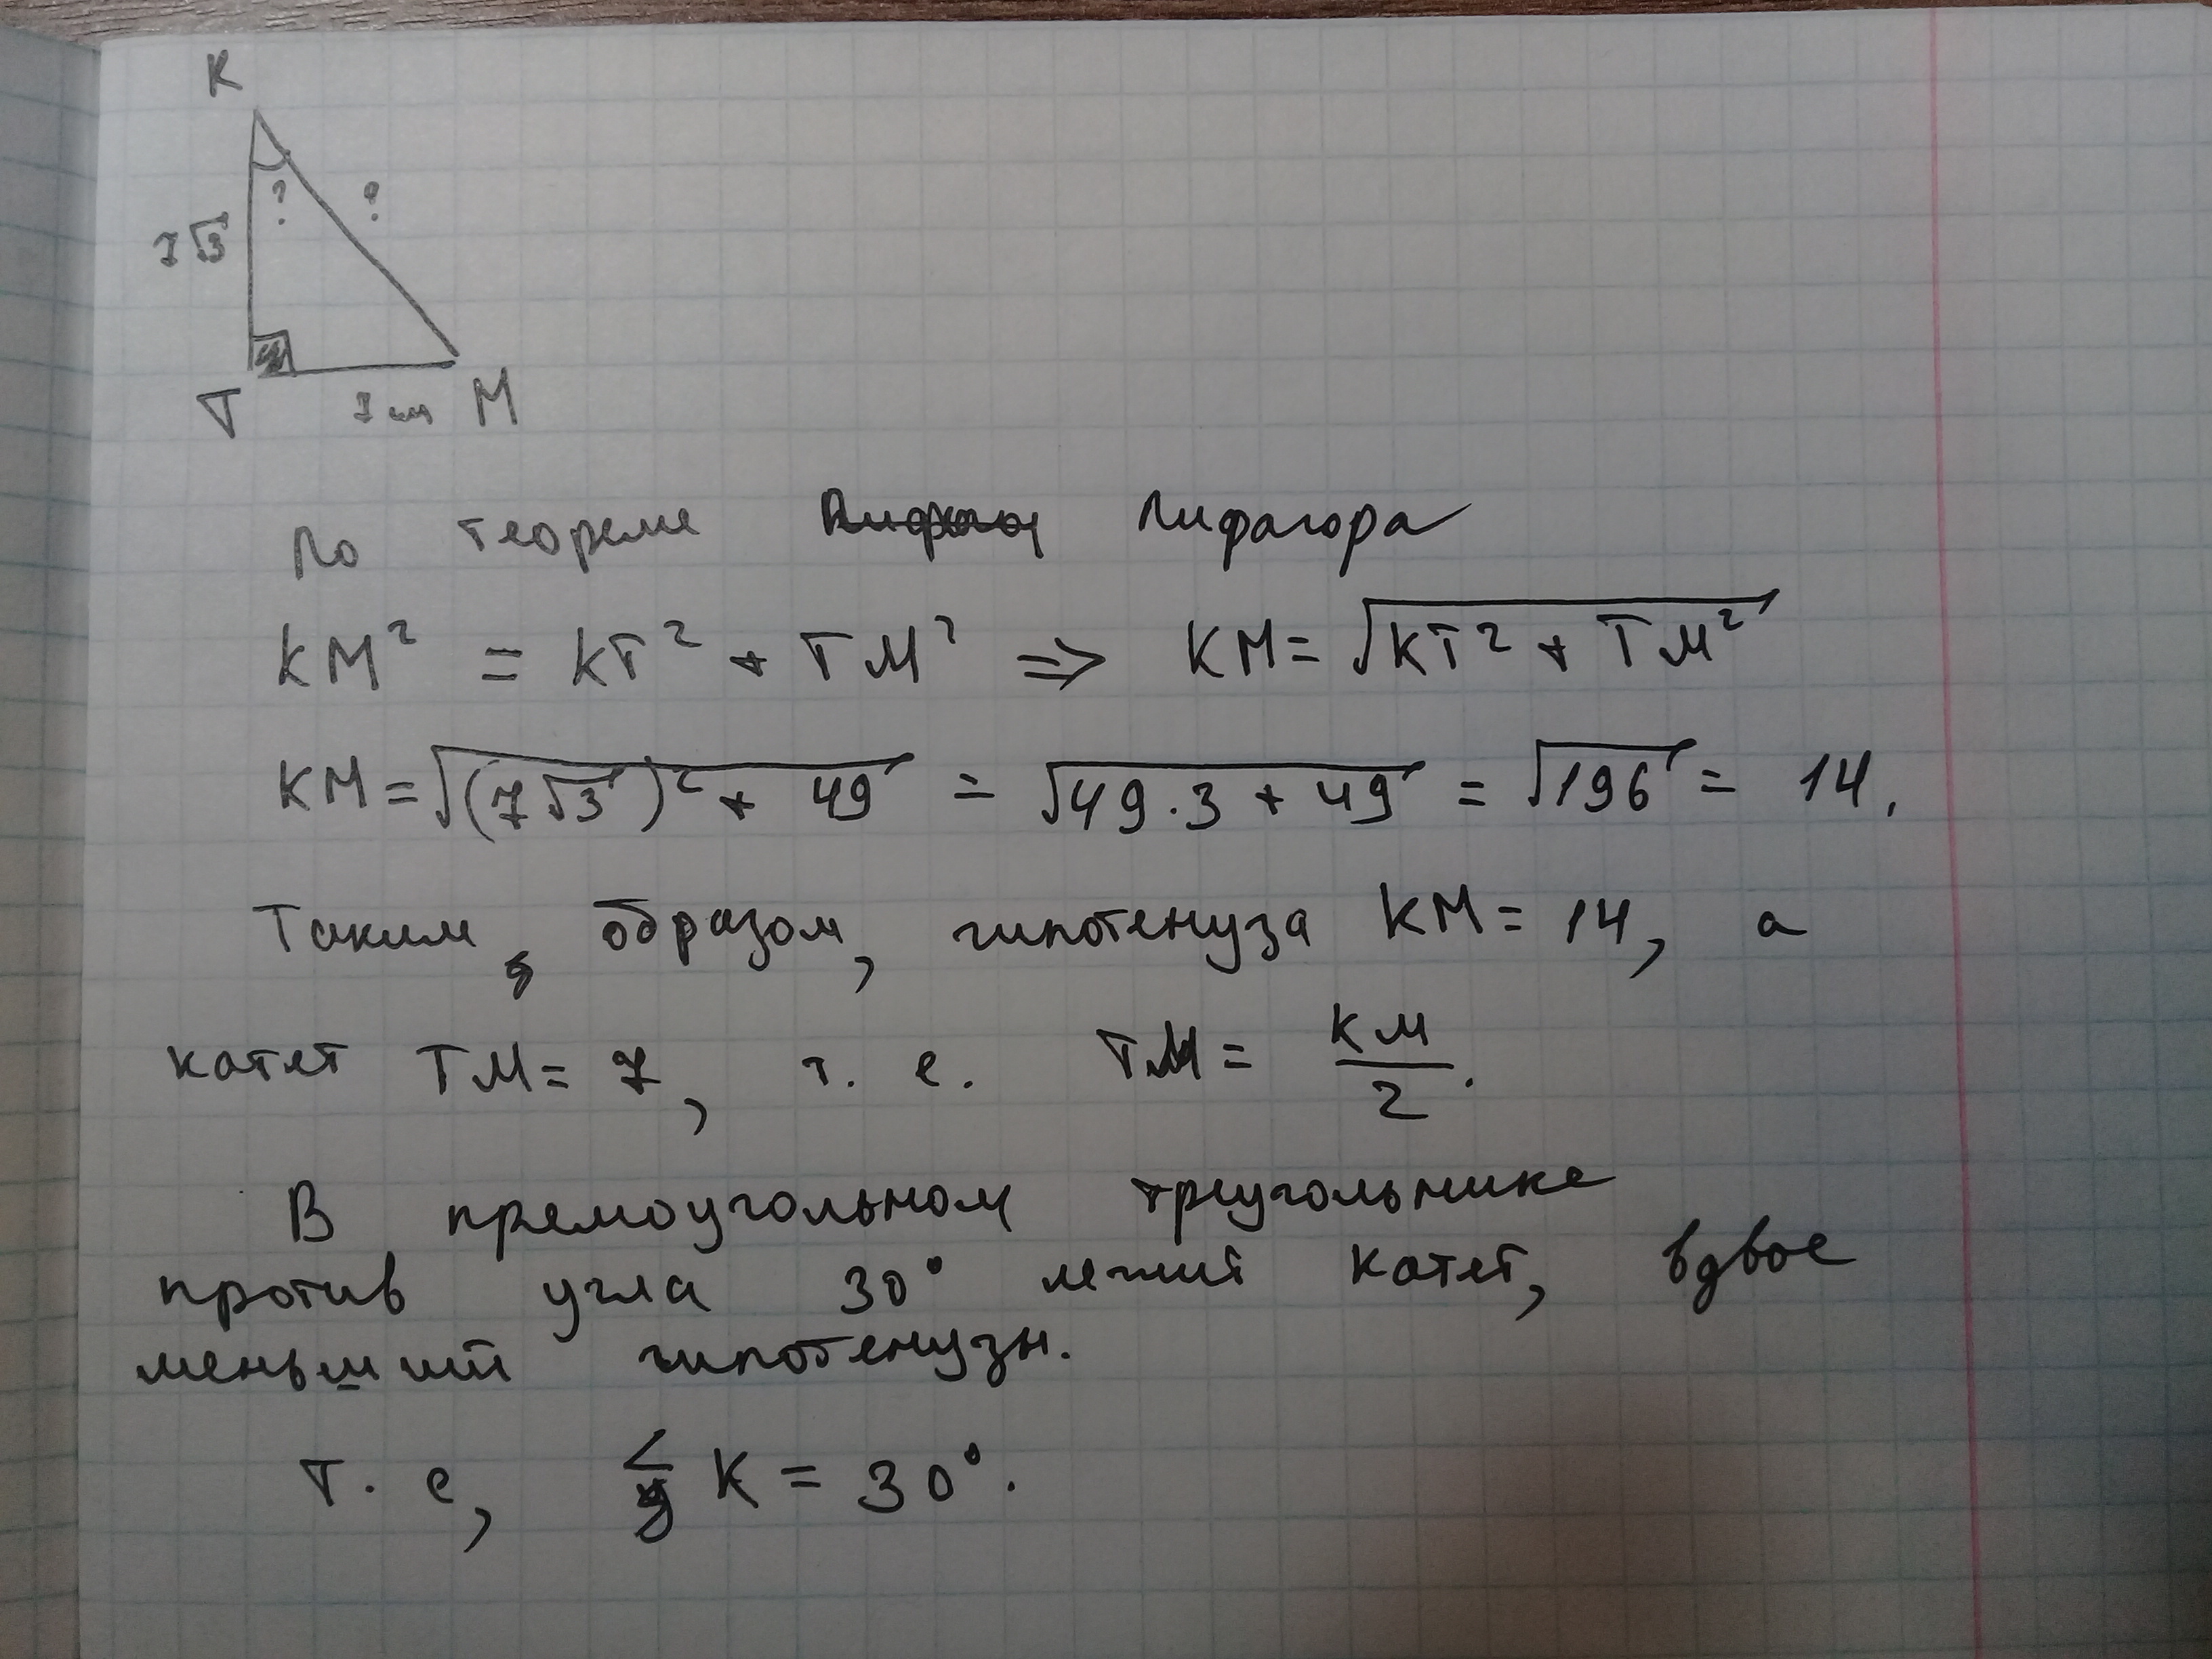 К
? ?
7√3
Т 7 см М
По теореме Пифагора
KM² = KT² + TM² => KM = √(KT² + TM²)
KM = √((7√3)² + 49) = √(49·3 + 49) = √196 = 14.
Таким образом, гипотенуза KM = 14, а
катет TM = 7, т. е. TM = KM/2.
В прямоугольном треугольнике
против угла 30° лежит катет, вдвое
меньший гипотенузы.
Т. е, ∠K = 30°.